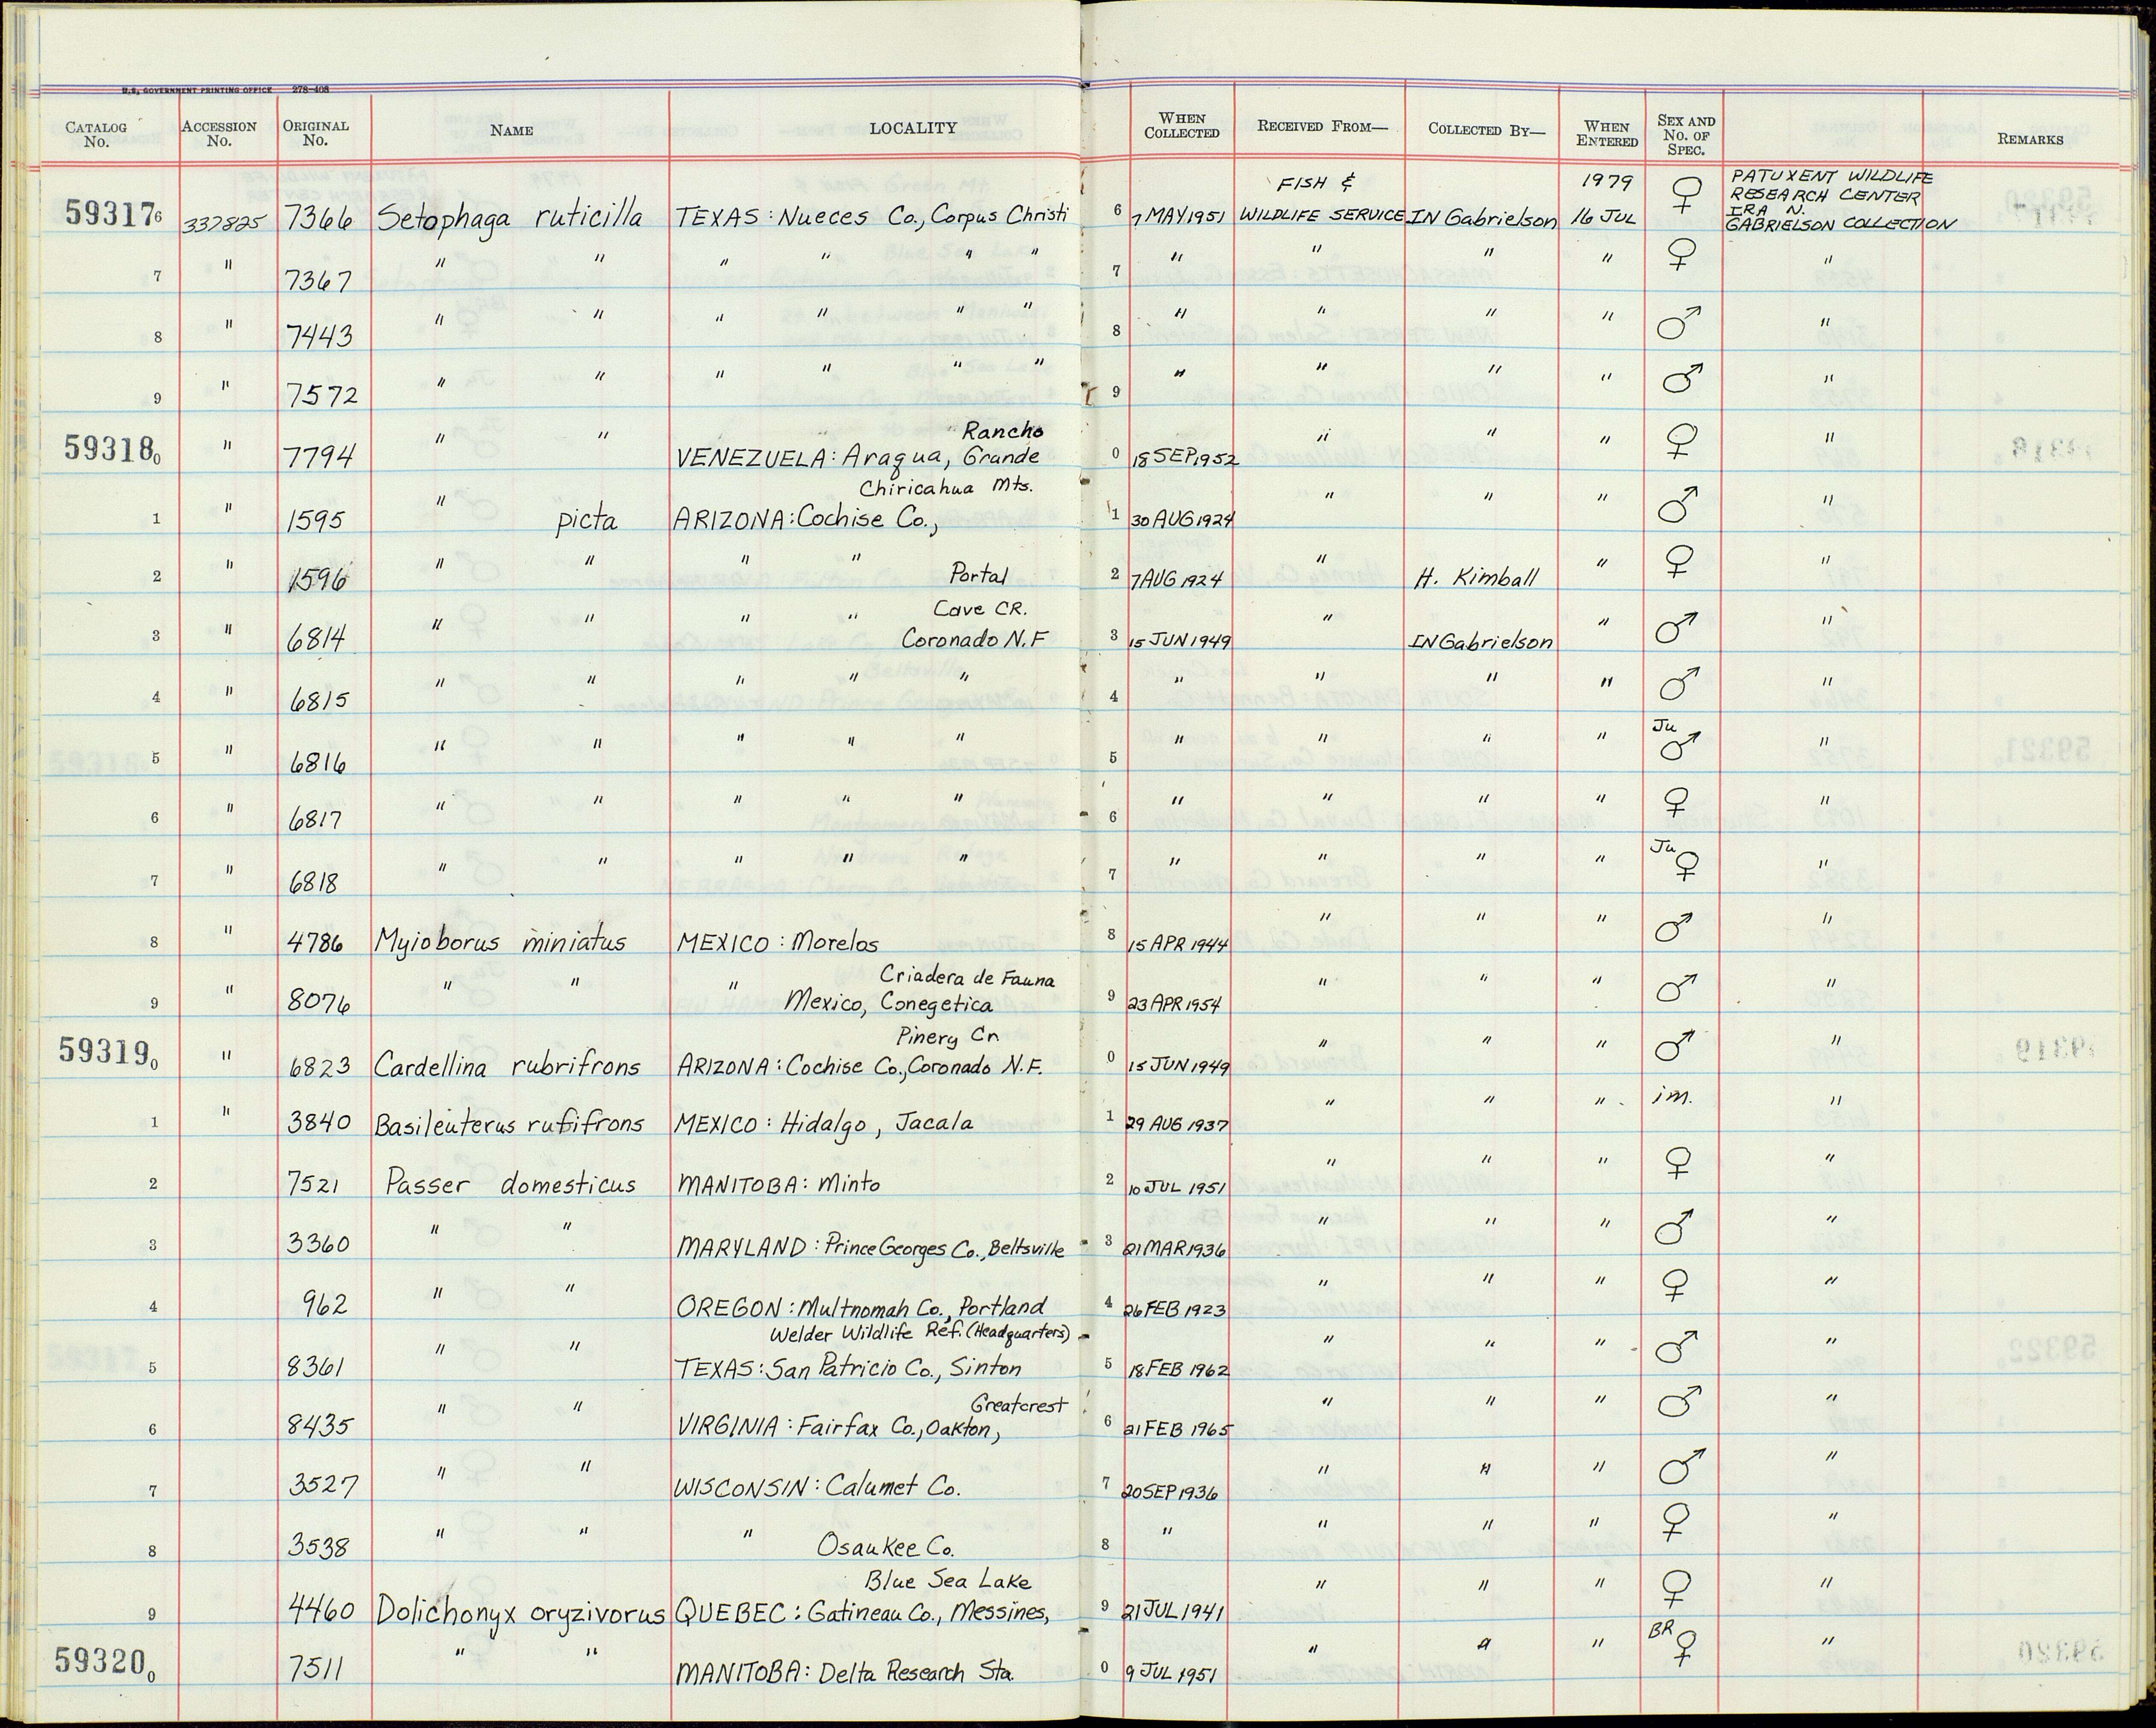 U.S. GOVERNMENT PRINTING OFFICE 278-408
CATALOG No. ACCESSION No. ORIGINAL No. NAME LOCALITY WHEN COLLECTED RECEIVED FROM— COLLECTED BY— WHEN ENTERED SEX AND No. OF SPEC. REMARKS
593176 337825 7366 Setophaga ruticilla TEXAS: Nueces Co., Corpus Christi 6 7 MAY 1951 FISH & WILDLIFE SERVICE IN Gabrielson 1979 16 JUL ♀ PATUXENT WILDLIFE RESEARCH CENTER IRA N. GABRIELSON COLLECTION
7 " 7367 " " " " " " 7 " " " " ♀ "
8 " 7443 " " " " " " 8 " " " " ♂ "
9 " 7572 " " " " " " 9 " " " " ♂ "
593180 " 7794 " " VENEZUELA: Aragua, Rancho Grande 0 18 SEP 1952 " " " ♀ "
1 " 1595 " picta ARIZONA: Cochise Co., Chiricahua Mts. 1 30 AUG 1924 " " " ♂ "
2 " 1596 " " " " Portal 2 7 AUG 1924 " H. Kimball " ♀ "
3 " 6814 " " " " Cave CR. Coronado N.F 3 15 JUN 1949 " IN Gabrielson " ♂ "
4 " 6815 " " " " " 4 " " " " ♂ "
5 " 6816 " " " " " 5 " " " " Ju ♂ "
6 " 6817 " " " " " 6 " " " " ♀ "
7 " 6818 " " " " " 7 " " " " Ju ♀ "
8 " 4786 Myioborus miniatus MEXICO: Morelos 8 15 APR 1944 " " " ♂ "
9 " 8076 " " " Mexico, Criadera de Fauna Conegetica 9 23 APR 1954 " " " ♂ "
593190 " 6823 Cardellina rubrifrons ARIZONA: Cochise Co., Pinery Cn Coronado N.F. 0 15 JUN 1949 " " " ♂ "
1 " 3840 Basileuterus rufifrons MEXICO: Hidalgo, Jacala 1 29 AUG 1937 " " " im. "
2 7521 Passer domesticus MANITOBA: Minto 2 10 JUL 1951 " " " ♀ "
3 3360 " " MARYLAND: Prince Georges Co., Beltsville 3 21 MAR 1936 " " " ♂ "
4 962 " " OREGON: Multnomah Co., Portland 4 26 FEB 1923 " " " ♀ "
5 8361 " " Welder Wildlife Ref. (Headquarters) TEXAS: San Patricio Co., Sinton 5 18 FEB 1962 " " " ♂ "
6 8435 " " VIRGINIA: Fairfax Co., Oakton, Greatcrest 6 21 FEB 1965 " " " ♂ "
7 3527 " " WISCONSIN: Calumet Co. 7 20 SEP 1936 " " " ♂ "
8 3538 " " " Osaukee Co. 8 " " " " ♀ "
9 4460 Dolichonyx oryzivorus QUEBEC: Gatineau Co., Messines, Blue Sea Lake 9 21 JUL 1941 " " " ♀ "
593200 7511 " " MANITOBA: Delta Research Sta. 0 9 JUL 1951 " " " BR ♀ "